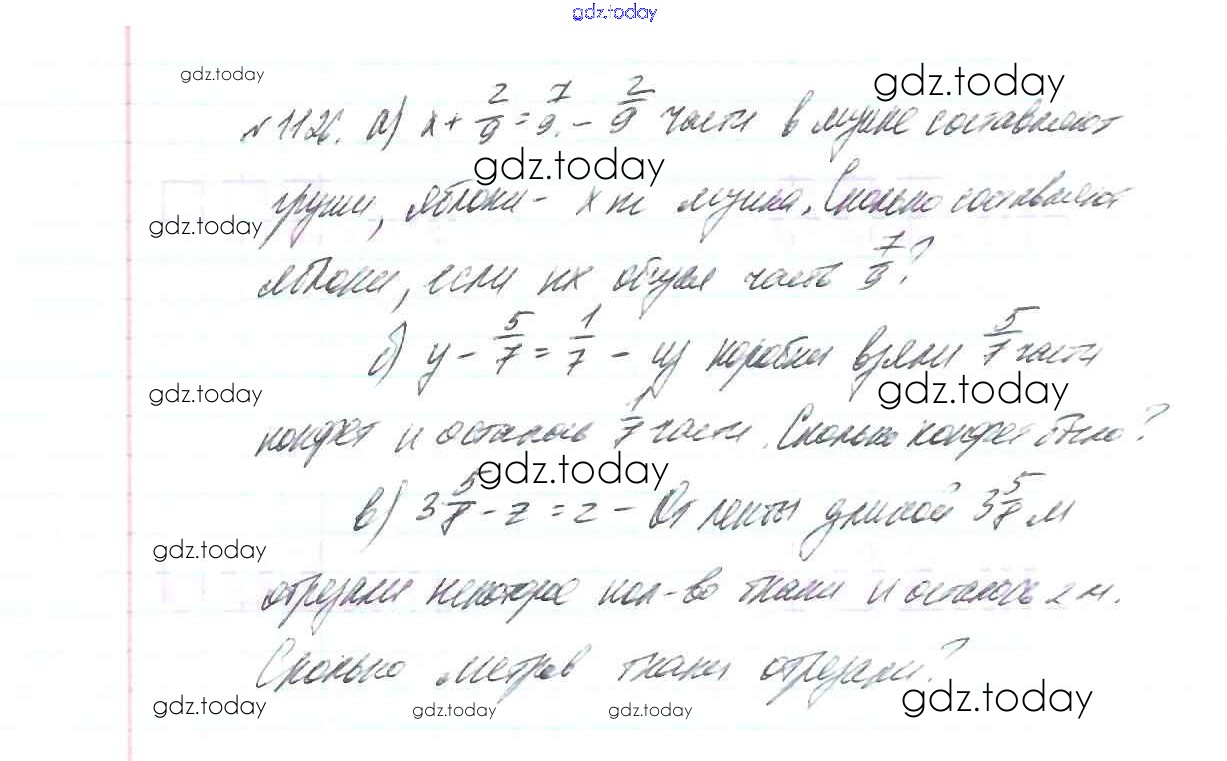 gdz.today
gdz.today
gdz.today
№1126. а) x + 2/9 = 7/9. - 2/9 части в ящике составляют
gdz.today
груши, яблоки - x т ящика. Сколько составляют
gdz.today
яблоки, если их общая часть 7/9?
б) y - 5/7 = 1/7 - из коробки взяли 5/7 части
gdz.today
gdz.today
конфет и осталось 1/7 части. Сколько конфет было?
gdz.today
в) 3 5/8 - z = 2 - От ленты длиной 3 5/8 м
gdz.today
отрезали некоторое кол-во ткани и осталось 2 м.
Сколько метров ткани отрезали?
gdz.today
gdz.today
gdz.today
gdz.today